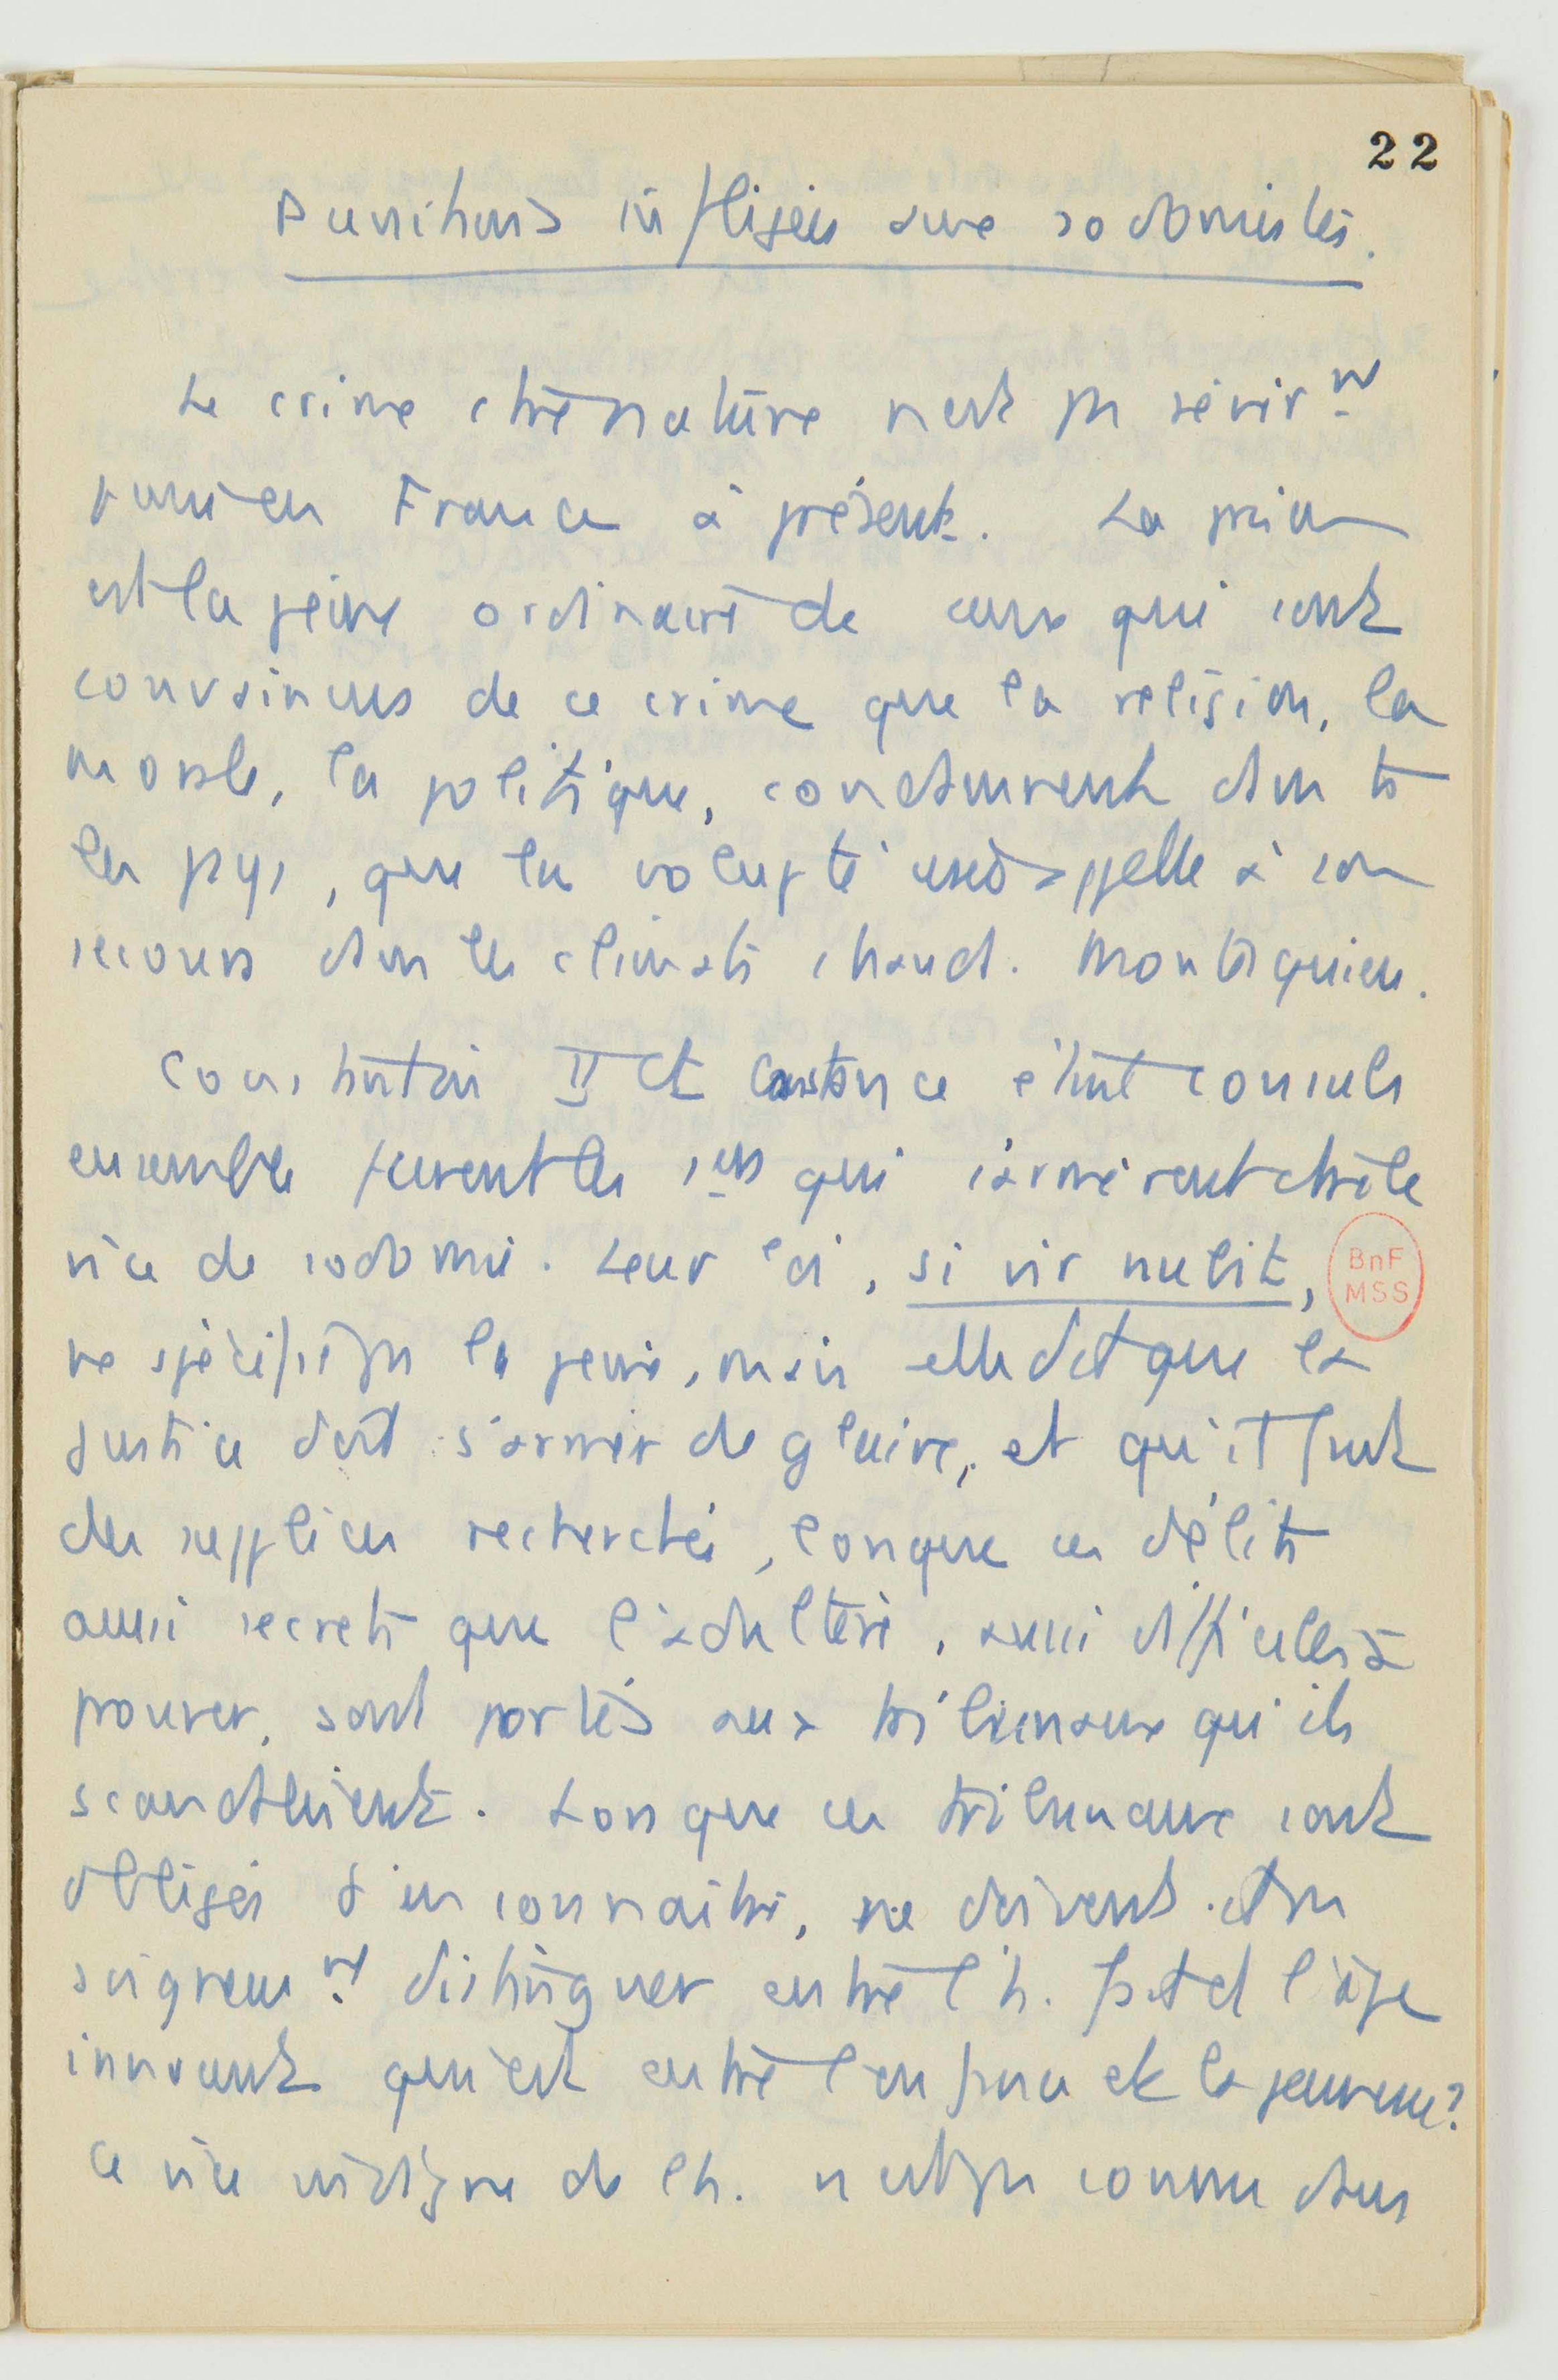 22
Punitions infligées aux sodomistes.
Le crime ctre nature n'est pas sévèrnt
puni en France à présent. La prison
est la peine ordinaire de ceux qui sont
convaincus de ce crime que la religion, la
morale, la politique, condamnent dans ts
les pays, que la volupté usée appelle à son
secours dans les climats chauds. Montesquieu.
Constantin II et Constance étant consuls
ensemble furent les 1ers qui s'armèrent ctre le
vice de sodomie. Leur loi, si vir nubit,
BnF
MSS
ne spécifie pas la peine, mais elle dit que la
Justice doit s'armer de glaive, et qu'il faut
des supplices recherchés, lorsque ces délits
aussi secrets que l'adultère, aussi difficiles à
prouver, sont portés aux tribunaux qu'ils
scandalisent. Lorsque ces tribunaux sont
obligés d'en connaître, ne doivent-ils pas
soigneusnt distinguer entre l'h. fait et l'âge
innocent qui est entre l'enfance et la jeunesse?
Ce vice indigne de l'h. n'est pas connu dans